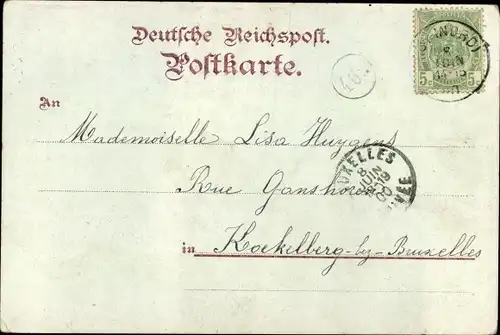 Deutsche Reichspost.
Postkarte.
An
Mademoiselle Lisa Huygens
Rue Ganshoren
in Koekelberg-by-Bruxelles
(NORD)
8
JUIN
5
5
BRUXELLES
8
JUIN
19
00